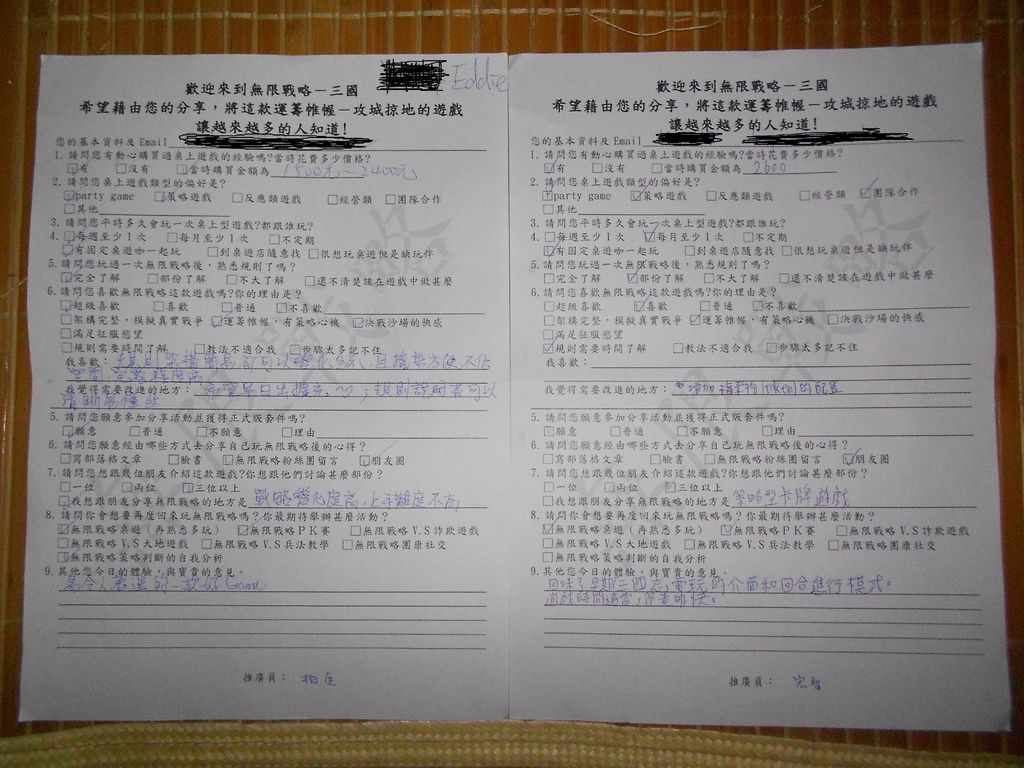 Eddie
歡迎來到無限戰略－三國
希望藉由您的分享，將這款運籌帷幄－攻城掠地的遊戲
讓越來越多的人知道!
您的基本資料及 Email
1. 請問您有動心購買過桌上遊戲的經驗嗎?當時花費多少價格?
☑有 □沒有 □當時購買金額為 1500元~2400元
2. 請問您桌上遊戲類型的偏好是?
☑party game ☑策略遊戲 □反應類遊戲 □經營類 □團隊合作
□其他
3. 請問您平時多久會玩一次桌上型遊戲?都跟誰玩?
4. ☑每週至少1次 □每月至少1次 □不定期
☑有固定桌遊咖一起玩 □到桌遊店隨意找 □很想玩桌遊但是缺玩伴
5. 請問您玩過一次無限戰略後，熟悉規則了嗎?
☑完全了解 □部份了解 □不大了解 □還不清楚該在遊戲中做甚麼
6. 請問您喜歡無限戰略這款遊戲嗎?你的理由是?
☑超級喜歡 □喜歡 □普通 □不喜歡
□架構完整，模擬真實戰爭 ☑運籌帷幄，有策略心機 ☑決戰沙場的快感
□滿足征服慾望
□規則需要時間了解 □教法不適合我 □步驟太多記不住
我喜歡： 且攜帶方便不佔
我覺得需要改進的地方： 希望早日出擴充 ；規則說明書可以
清晰易懂些
5. 請問您願意參加分享活動並獲得正式版套件嗎?
☑願意 □普通 □不願意 □理由
6. 請問您願意經由哪些方式去分享自己玩無限戰略後的心得?
□寫部落格文章 □臉書 ☑無限戰略粉絲團留言 ☑朋友圈
7. 請問您想跟幾位朋友介紹這款遊戲?你想跟他們討論甚麼部份?
□一位 □兩位 ☑三位以上
□我想跟朋友分享無限戰略的地方是 戰略變化度高，上手難度不高
8. 請問你會想要再度回來玩無限戰略嗎?你最期待舉辦甚麼活動?
☑無限戰略桌遊（再熟悉多玩） ☑無限戰略PK賽 □無限戰略V.S詐欺遊戲
☑無限戰略V.S大地遊戲 □無限戰略V.S兵法教學 □無限戰略團康社交
☑無限戰略策略判斷的自我分析
9. 其他您今日的體驗，與寶貴的意見。
是令人著迷的一款好Game
推廣員： 柏
歡迎來到無限戰略－三國
希望藉由您的分享，將這款運籌帷幄－攻城掠地的遊戲
讓越來越多的人知道!
您的基本資料及 Email
1. 請問您有動心購買過桌上遊戲的經驗嗎?當時花費多少價格?
☑有 □沒有 □當時購買金額為 2600
2. 請問您桌上遊戲類型的偏好是?
☑party game ☑策略遊戲 □反應類遊戲 □經營類 ☑團隊合作
□其他
3. 請問您平時多久會玩一次桌上型遊戲?都跟誰玩?
4. □每週至少1次 ☑每月至少1次 □不定期
☑有固定桌遊咖一起玩 □到桌遊店隨意找 □很想玩桌遊但是缺玩伴
5. 請問您玩過一次無限戰略後，熟悉規則了嗎?
□完全了解 ☑部份了解 □不大了解 □還不清楚該在遊戲中做甚麼
6. 請問您喜歡無限戰略這款遊戲嗎?你的理由是?
□超級喜歡 ☑喜歡 □普通 □不喜歡
□架構完整，模擬真實戰爭 ☑運籌帷幄，有策略心機 □決戰沙場的快感
□滿足征服慾望
☑規則需要時間了解 □教法不適合我 □步驟太多記不住
我喜歡：
我覺得需要改進的地方： 增加 token的配置
5. 請問您願意參加分享活動並獲得正式版套件嗎?
☑願意 □普通 □不願意 □理由
6. 請問您願意經由哪些方式去分享自己玩無限戰略後的心得?
□寫部落格文章 □臉書 □無限戰略粉絲團留言 ☑朋友圈
7. 請問您想跟幾位朋友介紹這款遊戲?你想跟他們討論甚麼部份?
□一位 □兩位 ☑三位以上
□我想跟朋友分享無限戰略的地方是 策略型卡牌遊戲
8. 請問你會想要再度回來玩無限戰略嗎?你最期待舉辦甚麼活動?
☑無限戰略桌遊（再熟悉多玩） ☑無限戰略PK賽 □無限戰略V.S詐欺遊戲
□無限戰略V.S大地遊戲 □無限戰略V.S兵法教學 □無限戰略團康社交
□無限戰略策略判斷的自我分析
9. 其他您今日的體驗，與寶貴的意見。
回味了早期三國志電玩的介面和回合進行模式。
時間適當，節奏明快。
推廣員： 宏智